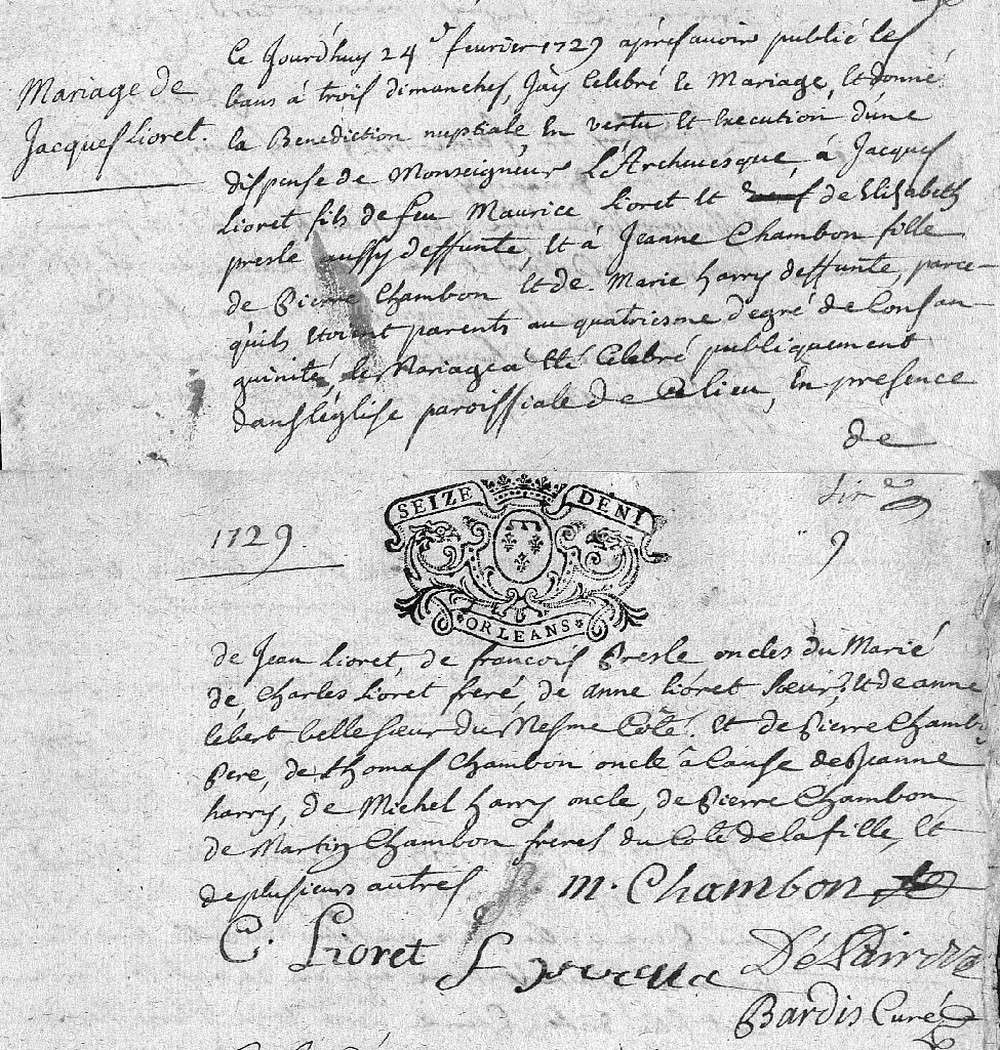 Mariage de
Jacques Lioret.
Ce Jourdhuy 24e fevrier 1729 apres avoir publié les
bans à trois dimanches, J'ay Celebré le Mariage, Et donné
la Benediction nuptiale, En vertu Et Execution d'une
dispense de Monseigneur L'Archevesque à Jacques
Lioret fils de feu Maurice Lioret Et de Elisabeth
presle aussy deffunte, Et à Jeanne Chambon fille
de Pierre Chambon Et de Marie harry deffunte, parce-
qu'ils Etoient parents au quatriesme degré de Consan-
guinité, le Mariage a Eté Celebré publiquement
dans l'église paroissiale de Ce lieu, En presence
de
1729
SEIZE DENI
ORLEANS
9
de Jean Lioret, de francois Presle oncles du Marié
de, Charles Lioret frere, de anne Lioret sœur, Et de anne
Lebert belle sœur du Mesme Côté. Et de Pierre Chambon
Pere, de thomas Chambon oncle à Cause de Jeanne
harry, de Michel harry oncle, de Pierre Chambon
de Martin Chambon freres du Coté de la fille, Et
de plusieurs autres
m. Chambon
C. Lioret
Bardis Curé